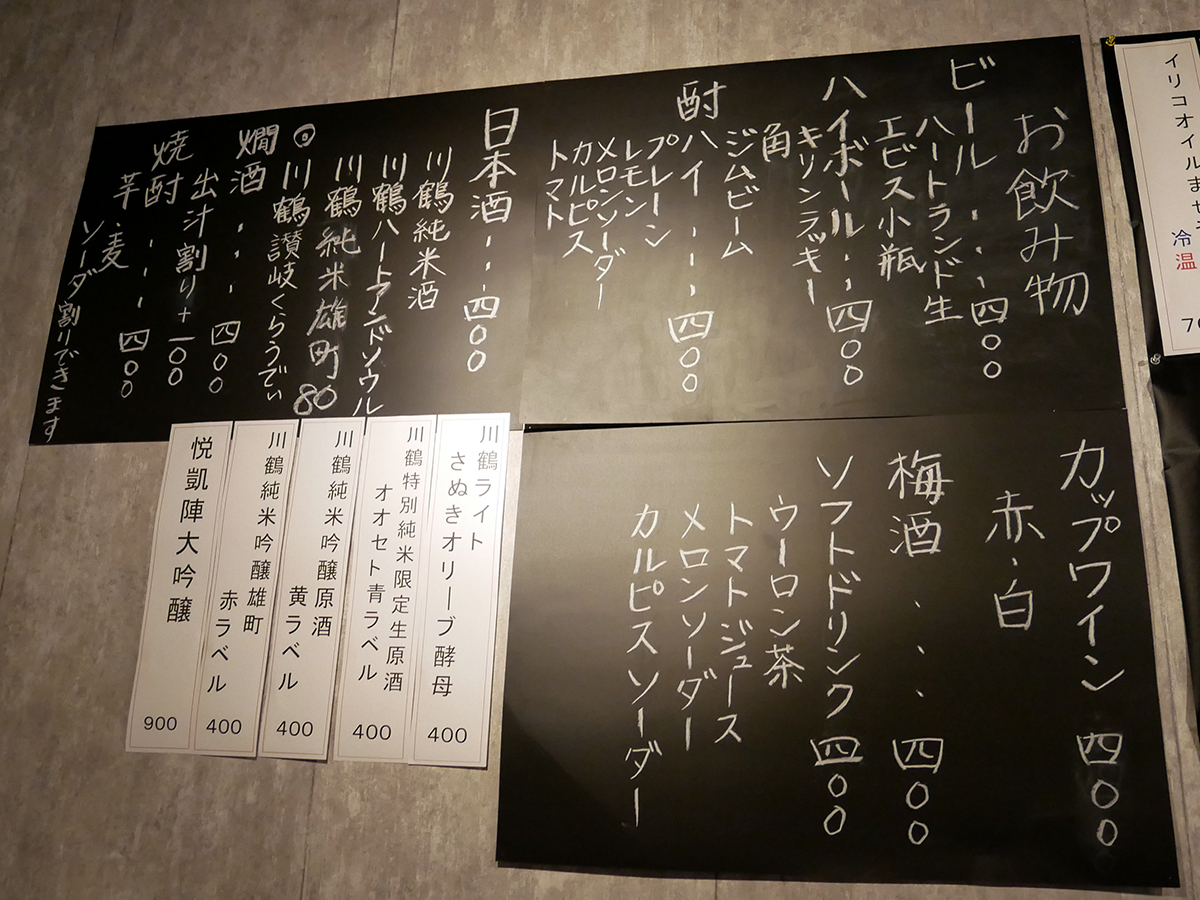 お飲み物
ビール・・・四〇〇
ハートランド生
エビス小瓶
ハイボール・・四〇〇
キリンラッキー
角
ジムビーム
酎ハイ・・・四〇〇
プレーン
レモン
メロンソーダー
カルピス
トマト
日本酒・・・四〇〇
川鶴純米酒
川鶴ハートアンドソウル
川鶴純米雄町80
◎川鶴讃岐くらうでぃ
燗酒・・・四〇〇
出汁割り+一〇〇
焼酎・・・四〇〇
芋・麦
ソーダ割りできます
カップワイン 四〇〇
赤・白
梅酒・・・四〇〇
ソフトドリンク 四〇〇
ウーロン茶
トマトジュース
メロンソーダー
カルピスソーダー
川鶴ライト
さぬきオリーブ酵母
400
川鶴特別純米限定生原酒
オオセト青ラベル
400
川鶴純米吟醸原酒
黄ラベル
400
川鶴純米吟醸雄町
赤ラベル
400
悦凱陣大吟醸
900
イリコオイルまぜ
冷
温